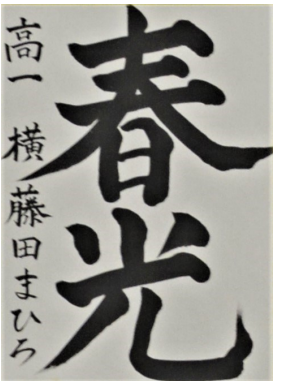 春光
高一 横 藤田まひろ